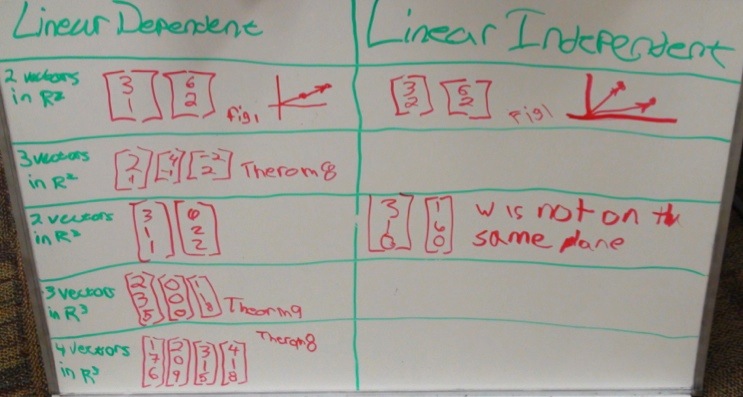 Linear Dependent
Linear Independent
2 vectors
in R²
[3 1] [6 2] fig1
[3 2] [5 2] Fig1
3 vectors
in R²
[2 1] [4 -1] [-2 2] Therom 8
2 vectors
in R³
[3 1 1] [6 2 2]
[3 1 0] [1 6 0] w is not on the
same plane
3 vectors
in R³
[2 3 5] [0 0 0] Theorm 9
4 vectors
in R³
[1 7 6] [2 0 9] [3 1 5] [4 1 8] Therom 8